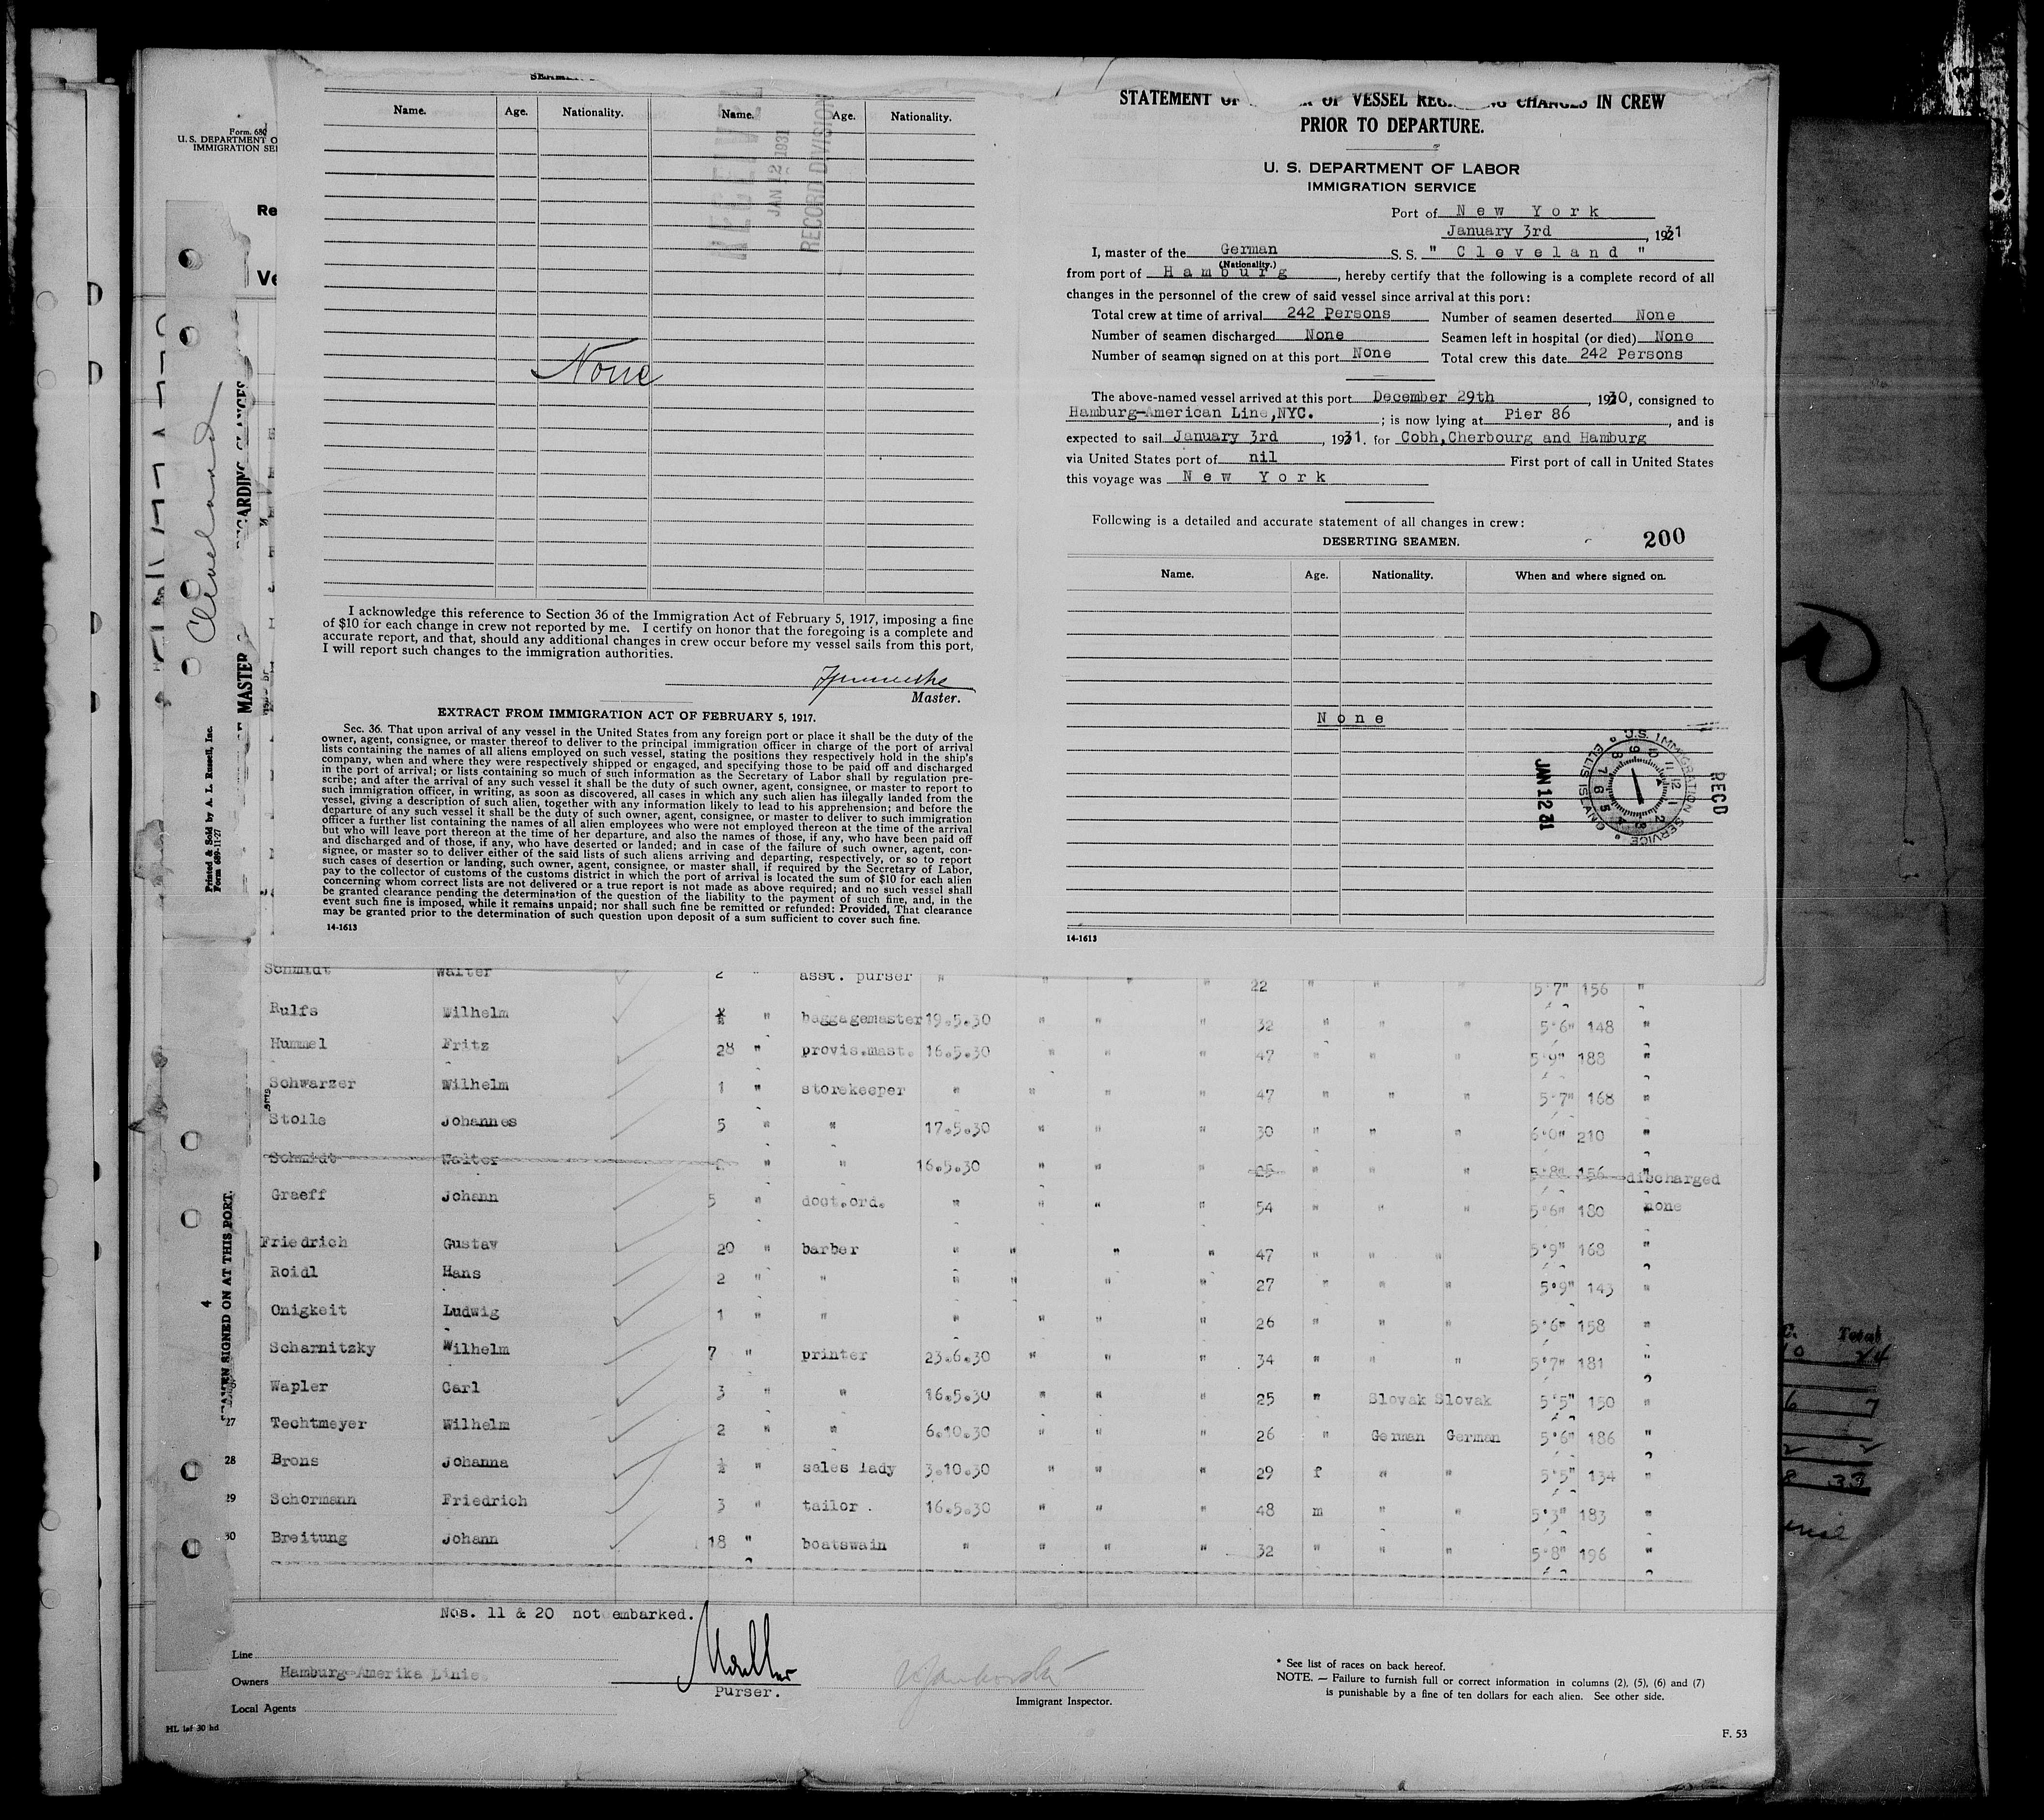 Form 680
U. S. DEPARTMENT O
IMMIGRATION SE
Re
Ve
Cleveland
REGARDING CHANGES
MASTER
Printed & Sold by A. L. Russell, Inc.
Form 689-11-27
4
SEAMEN SIGNED ON AT THIS PORT.
Name. Age. Nationality. Name. Age. Nationality.
RECEIVED
JAN 12 1931
RECORD DIVISION
None
I acknowledge this reference to Section 36 of the Immigration Act of February 5, 1917, imposing a fine
of $10 for each change in crew not reported by me. I certify on honor that the foregoing is a complete and
accurate report, and that, should any additional changes in crew occur before my vessel sails from this port,
I will report such changes to the immigration authorities.
Master.
EXTRACT FROM IMMIGRATION ACT OF FEBRUARY 5, 1917.
Sec. 36. That upon arrival of any vessel in the United States from any foreign port or place it shall be the duty of the
owner, agent, consignee, or master thereof to deliver to the principal immigration officer in charge of the port of arrival
lists containing the names of all aliens employed on such vessel, stating the positions they respectively hold in the ship's
company, when and where they were respectively shipped or engaged, and specifying those to be paid off and discharged
in the port of arrival; or lists containing so much of such information as the Secretary of Labor shall by regulation pre-
scribe; and after the arrival of any such vessel it shall be the duty of such owner, agent, consignee, or master to report to
such immigration officer, in writing, as soon as discovered, all cases in which any such alien has illegally landed from the
vessel, giving a description of such alien, together with any information likely to lead to his apprehension; and before the
departure of any such vessel it shall be the duty of such owner, agent, consignee, or master to deliver to such immigration
officer a further list containing the names of all alien employees who were not employed thereon at the time of the arrival
but who will leave port thereon at the time of her departure, and also the names of those, if any, who have been paid off
and discharged and of those, if any, who have deserted or landed; and in case of the failure of such owner, agent, con-
signee, or master so to deliver either of the said lists of such aliens arriving and departing, respectively, or so to report
such cases of desertion or landing, such owner, agent, consignee, or master shall, if required by the Secretary of Labor,
pay to the collector of customs of the customs district in which the port of arrival is located the sum of $10 for each alien
concerning whom correct lists are not delivered or a true report is not made as above required; and no such vessel shall
be granted clearance pending the determination of the question of the liability to the payment of such fine, and, in the
event such fine is imposed, while it remains unpaid; nor shall such fine be remitted or refunded: Provided, That clearance
may be granted prior to the determination of such question upon deposit of a sum sufficient to cover such fine.
14-1613
STATEMENT OF OF VESSEL REGARDING CHANGES IN CREW
PRIOR TO DEPARTURE.
U. S. DEPARTMENT OF LABOR
IMMIGRATION SERVICE
Port of New York
January 3rd, 1931
I, master of the German S. S. "Cleveland"
(Nationality.)
from port of Hamburg, hereby certify that the following is a complete record of all
changes in the personnel of the crew of said vessel since arrival at this port:
Total crew at time of arrival 242 Persons Number of seamen deserted None
Number of seamen discharged None Seamen left in hospital (or died) None
Number of seamen signed on at this port None Total crew this date 242 Persons
The above-named vessel arrived at this port December 29th, 1930, consigned to
Hamburg-American Line,NYC.; is now lying at Pier 86, and is
expected to sail January 3rd, 1931. for Cobh,Cherbourg and Hamburg
via United States port of nil First port of call in United States
this voyage was New York
Following is a detailed and accurate statement of all changes in crew:
DESERTING SEAMEN.
200
Name. Age. Nationality. When and where signed on.
None
JAN 12 31
U.S. IMMIGRATION SERVICE ELLIS ISLAND
RECD
14-1613
Schmidt Walter 2 " asst. purser " " " " 22 " " " 5'7" 156 "
Rulfs Wilhelm " baggagemaster 19.5.30 " " " 32 " " " 5'6" 148 "
Hummel Fritz 28 " provis.mast. 16.5.30 " " " 47 " " " 5'9" 188 "
Schwarzer Wilhelm 1 " storekeeper " " " " 47 " " " 5'7" 168 "
Stolle Johannes 5 " " 17.5.30 " " " 30 " " " 6'0" 210 "
Schmidt Walter 2 " " 16.5.30 " " " 25 " " " 5'8" 156 discharged
Graeff Johann 5 " doct.ord. " " " " 54 " " " 5'6" 180 none
Friedrich Gustav 20 " barber " " " " 47 " " " 5'9" 168 "
Roidl Hans 2 " " " " " " 27 " " " 5'9" 143 "
Onigkeit Ludwig 1 " " " " " " 26 " " " 5'6" 158 "
Scharnitzky Wilhelm 7 " printer 23.6.30 " " " 34 " " " 5'7" 181 "
Wapler Carl 3 " " 16.5.30 " " " 25 " Slovak Slovak 5'5" 150 "
27 Techtmeyer Wilhelm 2 " " 6.10.30 " " " 26 " German German 5'6" 186 "
28 Brons Johanna ½ " sales lady 3.10.30 " " " 29 f " " 5'5" 134 "
29 Schormann Friedrich 3 " tailor. 16.5.30 " " " 48 m " " 5'3" 183 "
30 Breitung Johann 18 " boatswain " " " " 32 " " " 5'8" 196 "
Nos. 11 & 20 not embarked.
Line
Owners Hamburg-Amerika Linie.
Local Agents
Purser.
Immigrant Inspector.
* See list of races on back hereof.
NOTE. — Failure to furnish full or correct information in columns (2), (5), (6) and (7)
is punishable by a fine of ten dollars for each alien. See other side.
HL 1sf 30 hd
F. 53
Total
24
7
33